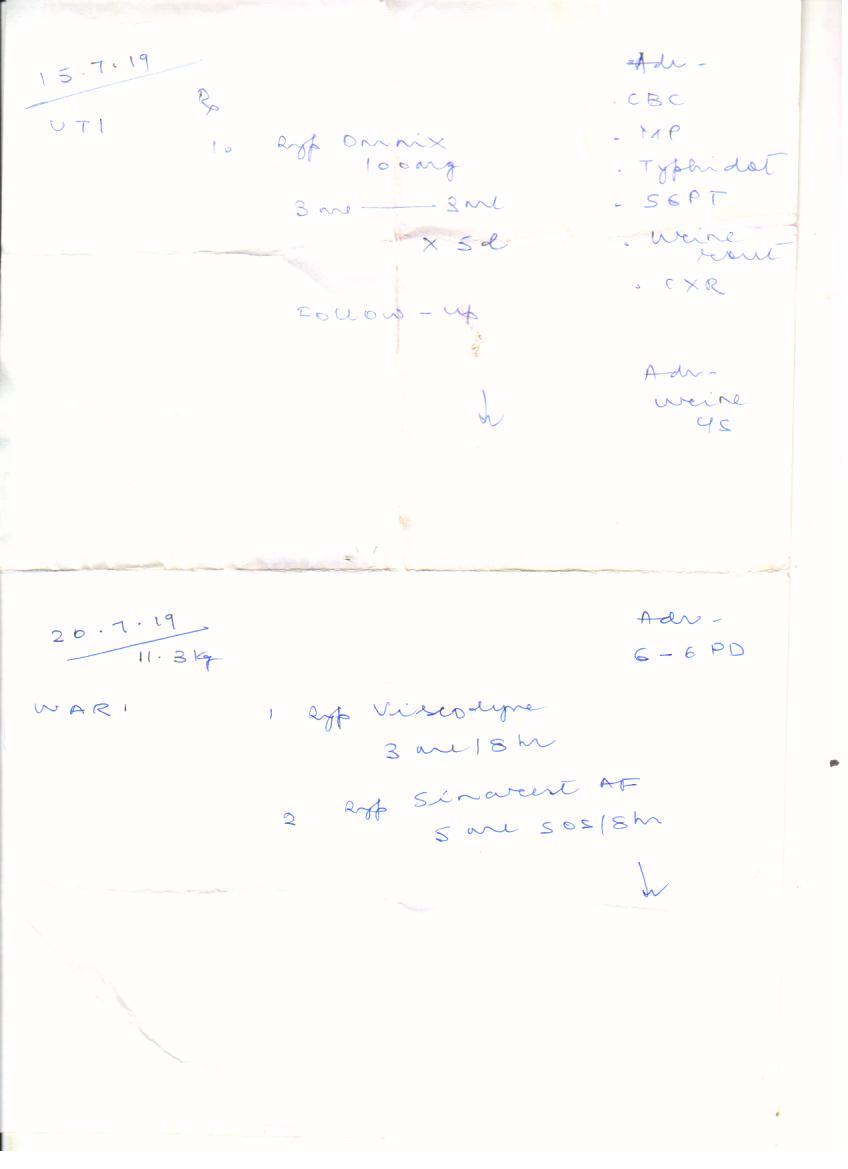 15.7.19
UTI
Rx
1. Syp Omnix
100mg
3 ml — 3 ml
x 5d
Follow-up
Adv -
. CBC
- MP
. Typhidot
- SGPT
. Urine
rout
. CXR
Adv-
Urine
4s
20.7.19
11.3kg
WARI
1 Syp Viscodyne
3 ml/8 hr
2 Syp Sinarest AF
5 ml SOS/8hr
Adv -
6-6 PD